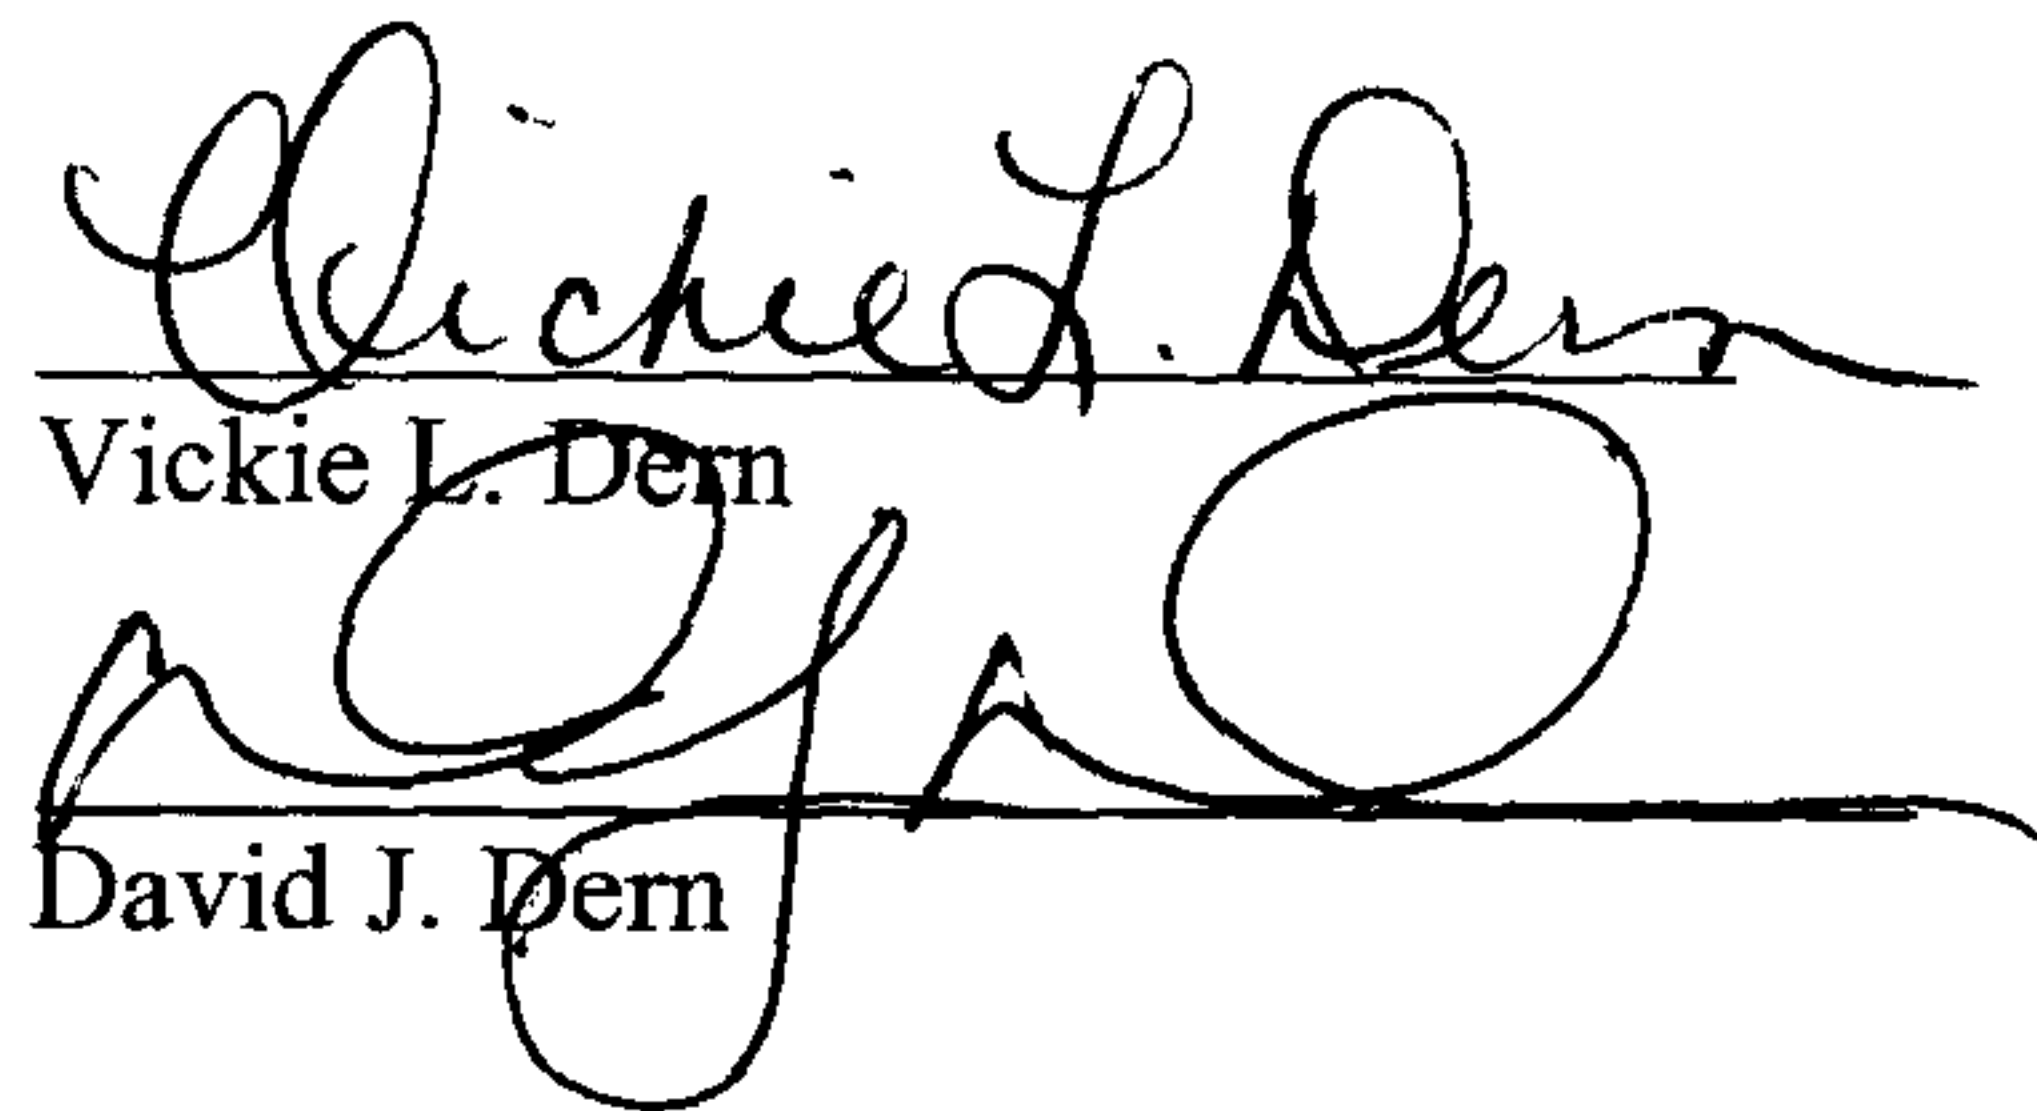 Vickie L. Dern
Vickie L. Dern
David J. Dern